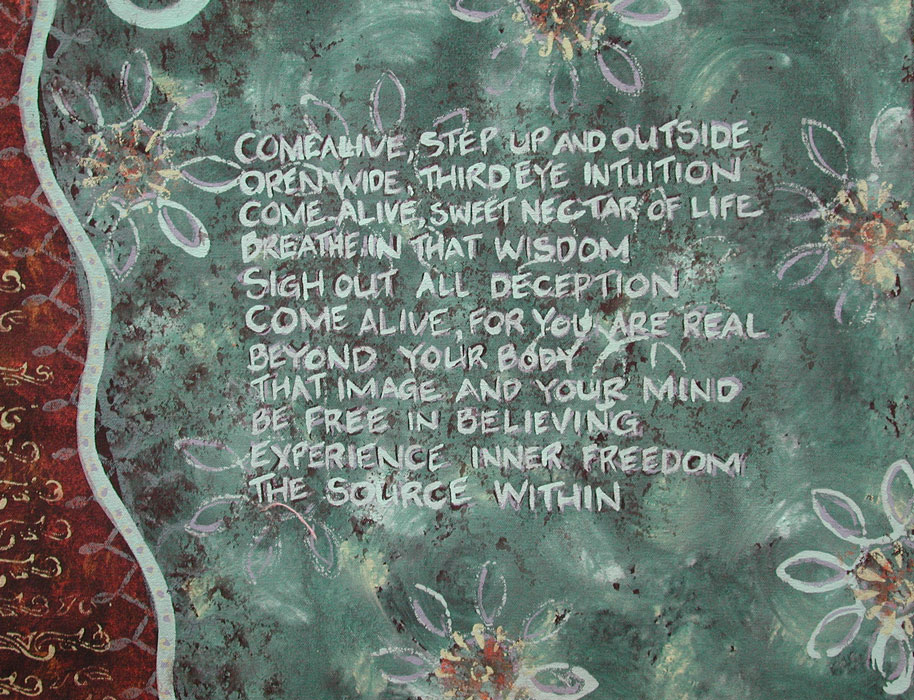 COME ALIVE, STEP UP AND OUTSIDE
OPEN WIDE, THIRD EYE INTUITION
COME ALIVE, SWEET NECTAR OF LIFE
BREATHE IN THAT WISDOM
SIGH OUT ALL DECEPTION
COME ALIVE, FOR YOU ARE REAL
BEYOND YOUR BODY
THAT IMAGE AND YOUR MIND
BE FREE IN BELIEVING
EXPERIENCE INNER FREEDOM
THE SOURCE WITHIN